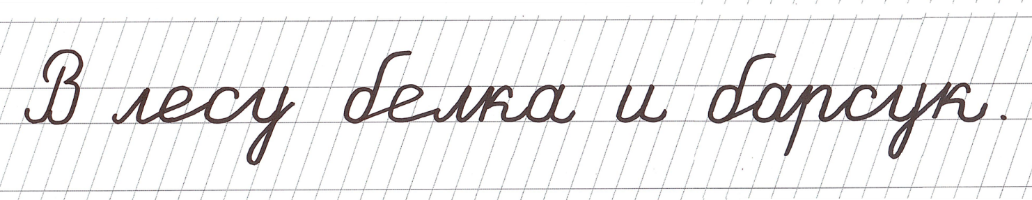 В лесу белка и барсук.